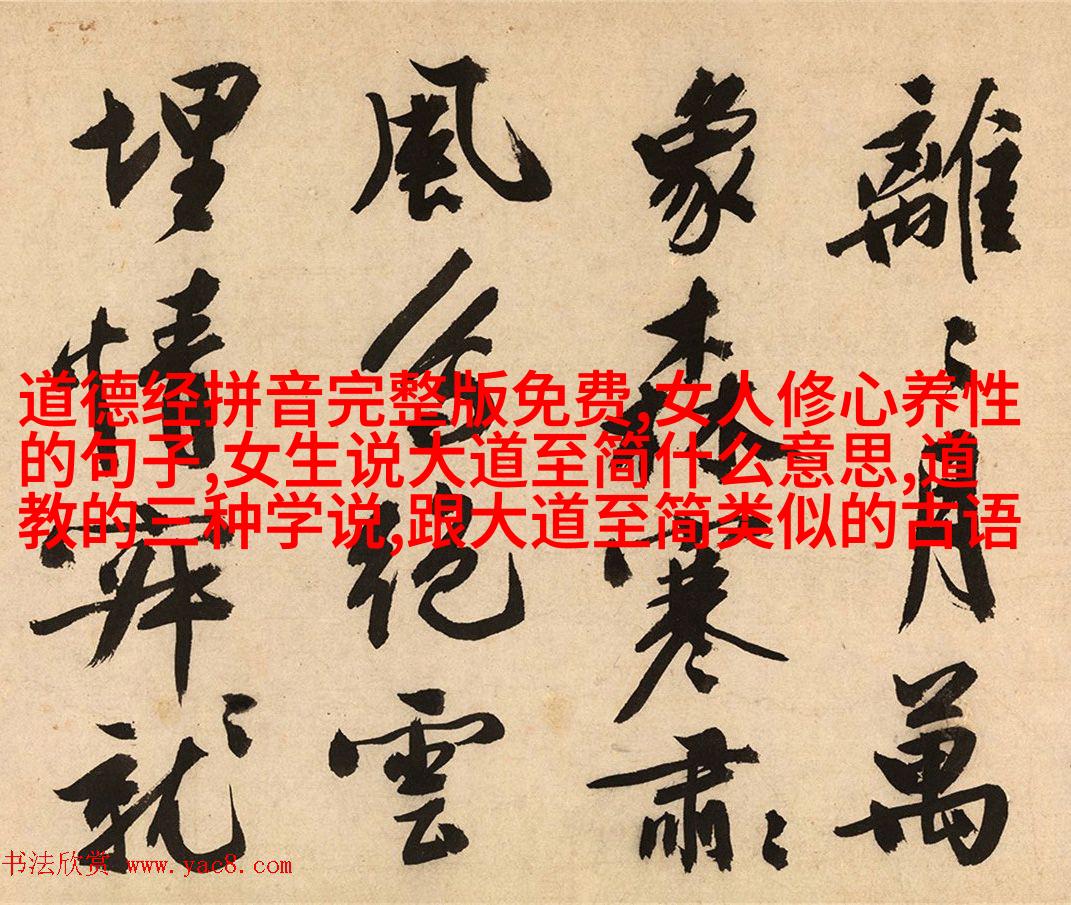 離〻月萬
象森寒肅〻
風色絕雲
埋情就
道德经拼音完整版免费,女人修心养性
的句子,女生说大道至简什么意思,道
教的三种学说,跟大道至简类似的古语
书法欣赏 www.yac8.com